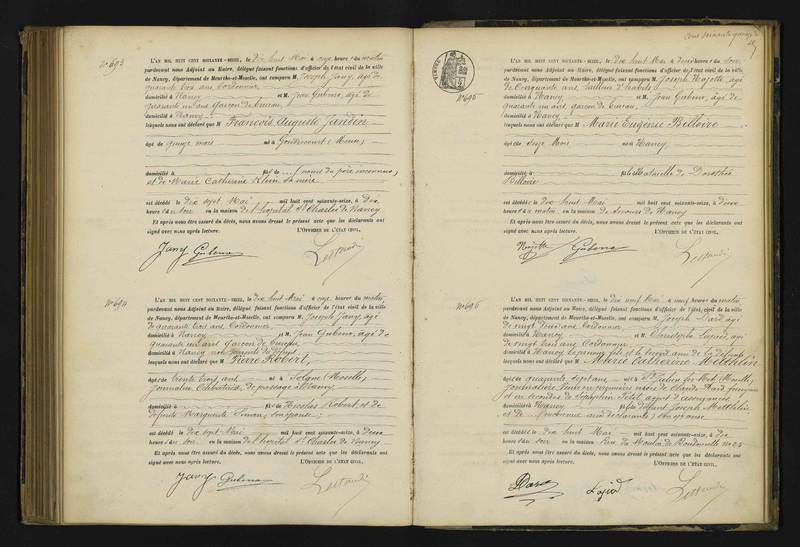 N° 693
L'AN MIL HUIT CENT SOIXANTE-SEIZE, le dix huit Mai à onze heures du matin
pardevant nous Adjoint au Maire, délégué faisant fonctions d'officier de l'état civil de la ville
de Nancy, département de Meurthe-et-Moselle, ont comparu M. Joseph Jany, âgé de
quarante trois ans Cordonnier,
domicilié à Nancy et M. Jean Gubena, âgé de
quarante un ans garçon de bureau,
domicilié à Nancy
lesquels nous ont déclaré que M François Auguste Jandin,
âgé de quinze mois né à Gondrecourt (Meuse)
domicilié à fils de (nom du père inconnu)
et de Marie Catherine Klein sa mère
est décédé le dix sept Mai mil huit cent soixante-seize, à dix
heures du soir en la maison de l'hôpital St Charles de Nancy.
Et après nous être assuré du décès, nous avons dressé le présent acte que les déclarants ont
signé avec nous après lecture. L'OFFICIER DE L'ÉTAT CIVIL,
Jany Gubena
N° 694
L'AN MIL HUIT CENT SOIXANTE-SEIZE, le dix huit Mai à onze heures du matin,
pardevant nous Adjoint au Maire, délégué faisant fonctions d'officier de l'état civil de la ville
de Nancy, département de Meurthe-et-Moselle, ont comparu M. Joseph Jany, âgé
de quarante trois ans Cordonnier,
domicilié à Nancy et M. Jean Gubena, âgé de
quarante un ans garçon de bureau
domicilié à Nancy non parents du défunt
lesquels nous ont déclaré que M Pierre Robert,
âgé de trente trois ans né à Solgne (Moselle)
journalier, Célibataire, de passage à Nancy
domicilié à fils de Nicolas Robert et de
défunte Marguerite Simon, son épouse;
est décédé le dix sept Mai mil huit cent soixante-seize, à deux
heures du soir en la maison de l'hôpital St Charles de Nancy
Et après nous être assuré du décès, nous avons dressé le présent acte que les déclarants ont
signé avec nous après lecture. L'OFFICIER DE L'ÉTAT CIVIL,
Jany Gubena
N° 695
L'AN MIL HUIT CENT SOIXANTE-SEIZE, le dix huit Mai à deux heures du soir
pardevant nous Adjoint au Maire, délégué faisant fonctions d'officier de l'état civil de la ville
de Nancy, département de Meurthe-et-Moselle, ont comparu M. Joseph, âgé
de Cinquante ans, tailleur d'habits
domicilié à Nancy et M. Jean Gubena, âgé de
quarante un ans, garçon de bureau,
domicilié à Nancy
lesquels nous ont déclaré que M Marie Eugénie Billoire
âgé de seize Mois né à Nancy
domicilié à fille naturelle de Dorothée
Billoire
est décédé le dix huit Mai mil huit cent soixante-seize, à deux
heures du matin en la maison de secours de Nancy
Et après nous être assuré du décès, nous avons dressé le présent acte que les déclarants ont
signé avec nous après lecture. L'OFFICIER DE L'ÉTAT CIVIL,
Gubena
N° 696
L'AN MIL HUIT CENT SOIXANTE-SEIZE, le dix neuf Mai à neuf heures du matin
pardevant nous Adjoint au Maire, délégué faisant fonctions d'officier de l'état civil de la ville
de Nancy, département de Meurthe-et-Moselle, ont comparu M. Joseph âgé
de vingt deux ans Cordonnier,
domicilié à Nancy et M. Christophe âgé
de vingt trois ans, Cordonnier
domicilié à Nancy le premier fils et le second ami de la défunte
lesquels nous ont déclaré que M Marie Catherine
âgé de quarante sept ans né à St Julien les Metz (Moselle),
domicilié à Nancy
est décédé le dix huit Mai mil huit cent soixante-seize, à dix
heures du soir en la maison Rue
Et après nous être assuré du décès, nous avons dressé le présent acte que les déclarants ont
signé avec nous après lecture. L'OFFICIER DE L'ÉTAT CIVIL,